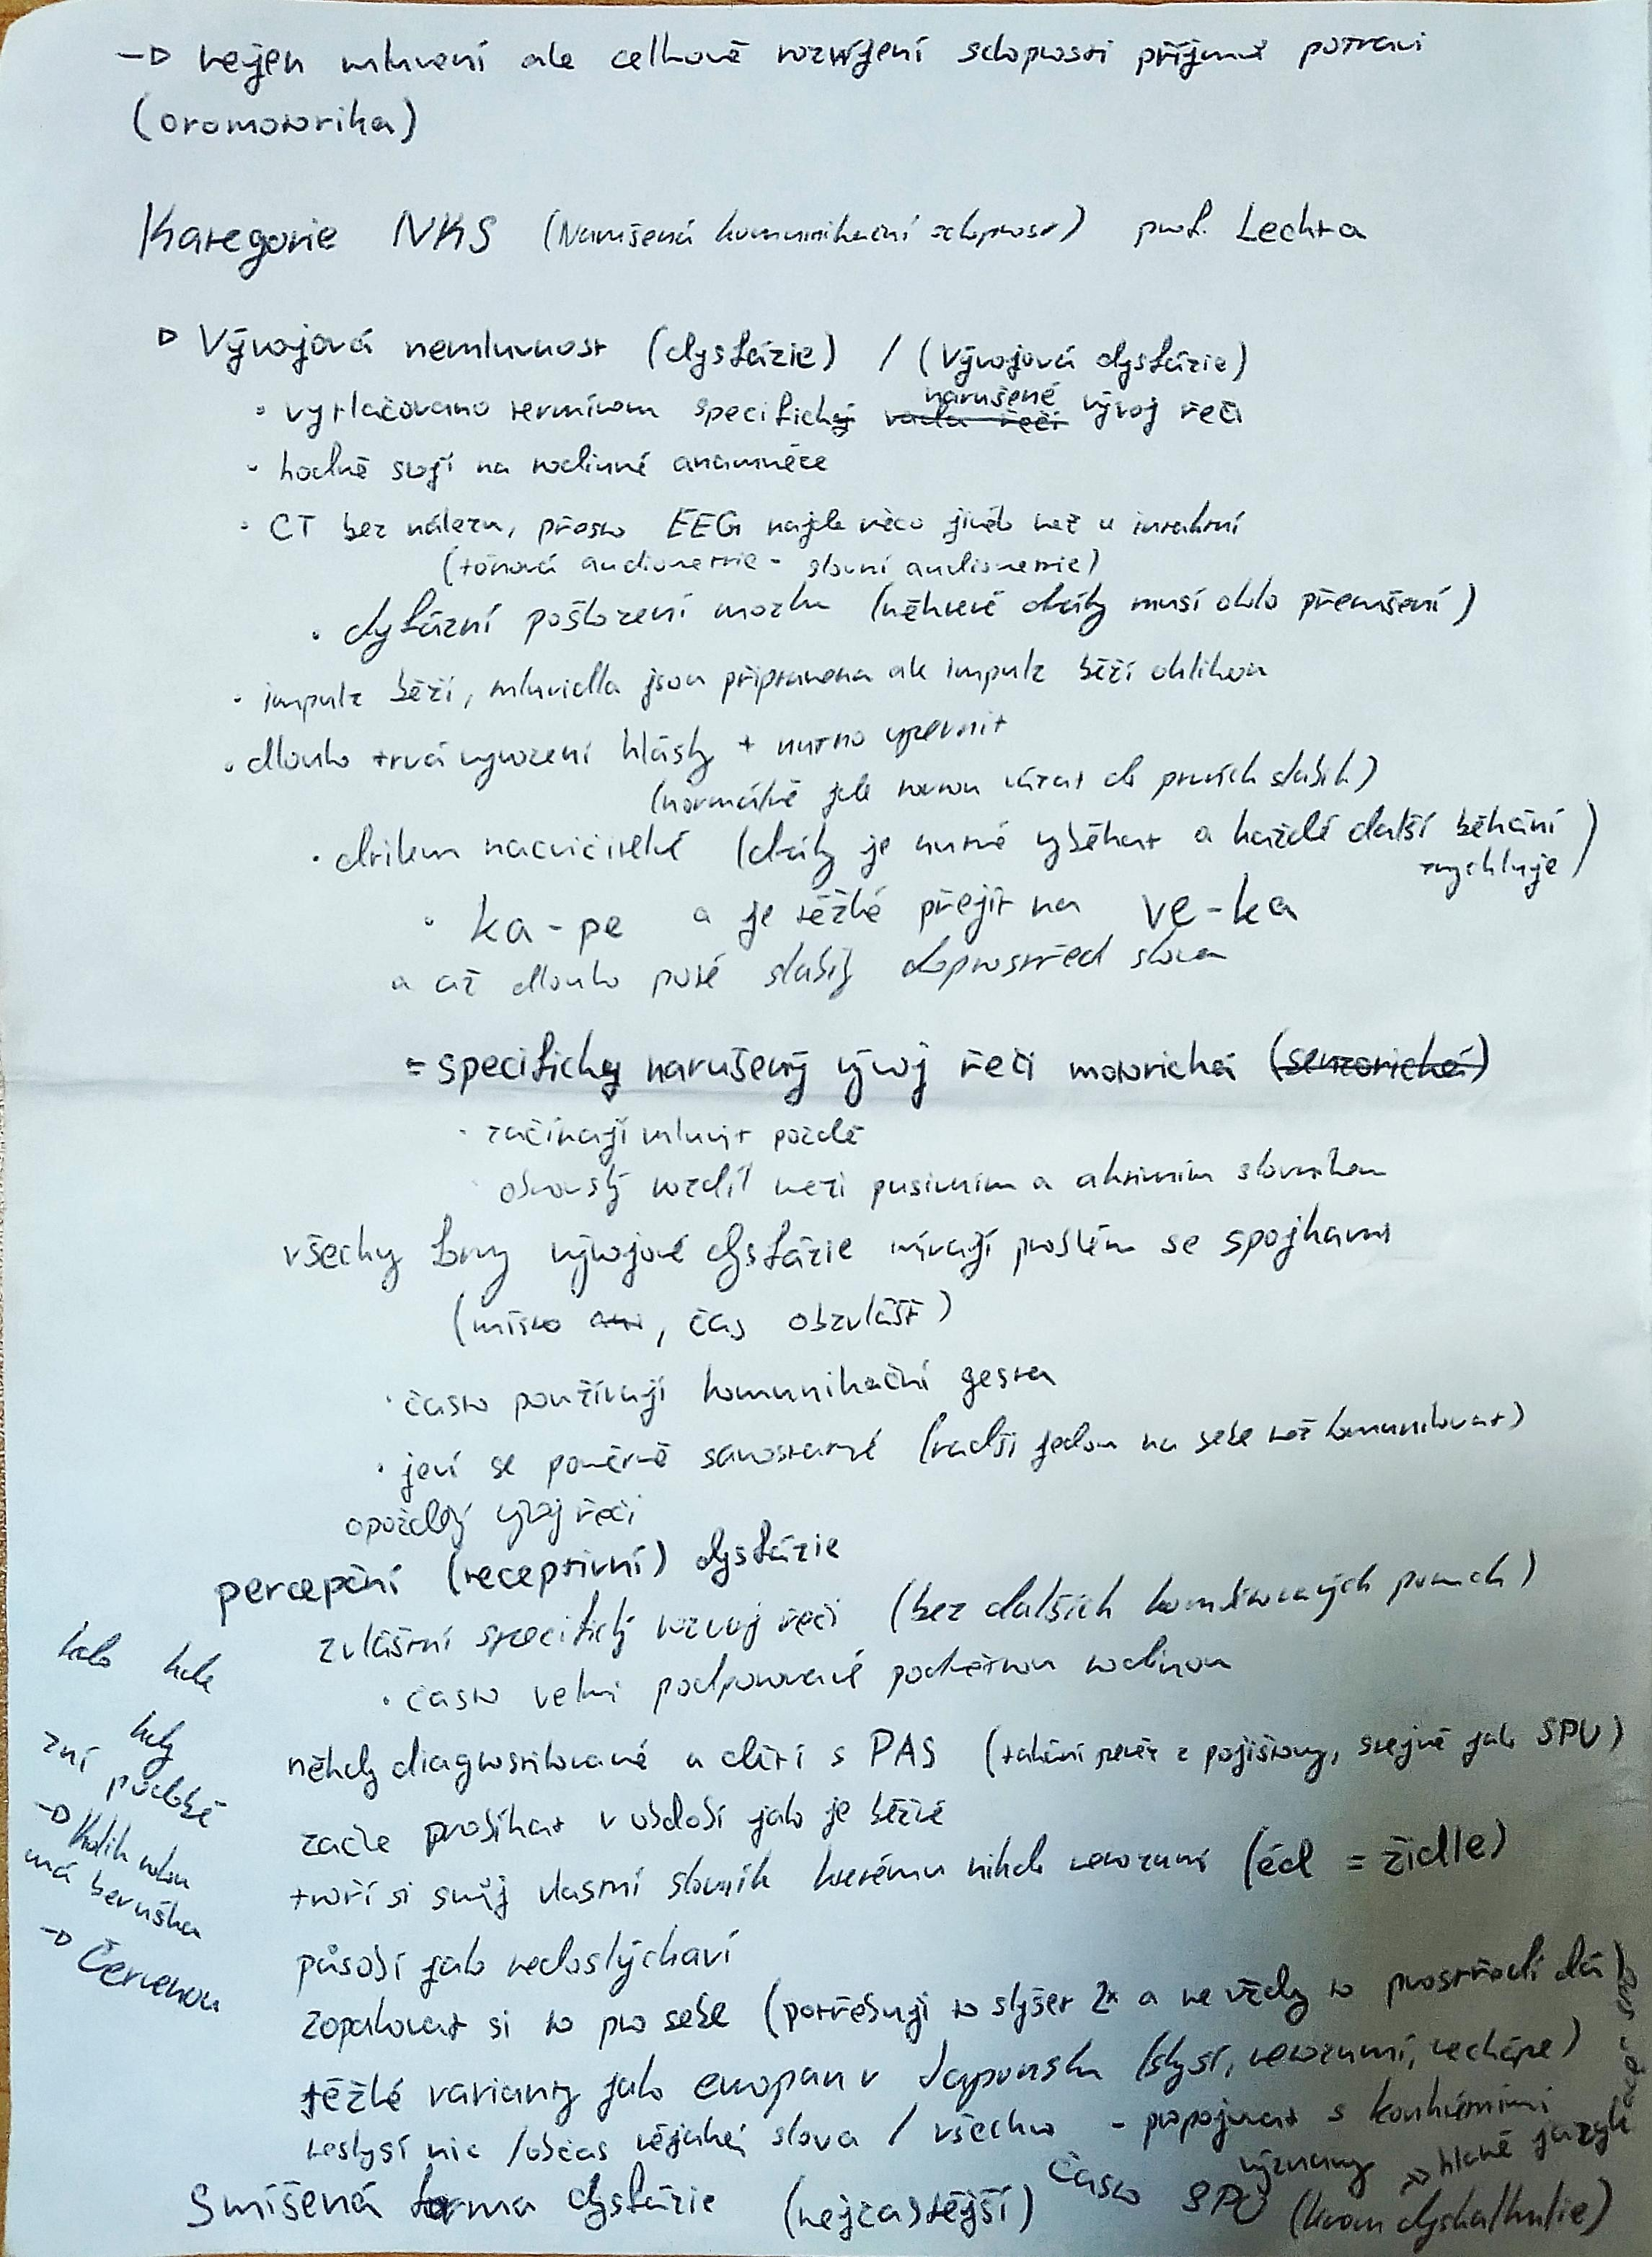 → nejen mluvení ale celkově rozvíjení schopnosti příjmu potravi
(oromotorika)
Kategorie NKS (Narušená komunikační schopnost) prof. Lechta
▷ Vývojová nemluvnost (dysfázie) / (Vývojová dysfázie)
• vytlačováno termínem specificky narušené vývoj řeči
• hodně stojí na rodinné anamnéze
• CT bez nálezu, přesto EEG najde něco jiného než u intaktní
(tónová audiometrie - slovní audiometrie)
• dysfázní poškození mozku (některé dráhy musí být přerušení)
• impulz běží, mluvidla jsou připravena ale impulz běží oklikou
• dlouho trvá vyvození hlásky + nutno upevnit
(normálně jde rovnou vázat do prvních slabik)
• drilem nacvičitelné (dráhy je nutné vyběhat a každé další běhání zrychluje)
• ka-pe a je těžké přejít na ve-ka
a až dlouho poté slabiky doprostřed slova
= specificky narušený vývoj řeči motorická (senzorická)
• začínají mluvit pozdě
• obrovský rozdíl mezi pasivním a aktivním slovníkem
všechy formy vývojové dysfázie mívají problém se spojkami
(místo, čas obzvlášť)
• často používají komunikační gesta
• jeví se poměrně samostatně (radši jedou na sebe než komunikovat)
opožděný vývoj řeči
percepční (receptivní) dysfázie
zvláštní specifický rozvoj řeči (bez dalších kombinovaných poruch)
• často velmi podporované podnětnou rodinou
někdy diagnostikované u dětí s PAS (tahání peněz z pojišťovny, stejně jako SPU)
začne probíhat v období jako je běžné
tvoří si svůj vlastní slovník kterému nikdo nerozumí (édl = židle)
působí jako nedoslýchaví
zopakovat si to pro sebe (potřebují to slyšet 2x a ne vždy to prostředí dá)
těžké varianty jako evropan v Japonsku (slyší, nerozumí, nechápe)
neslyší nic / občas nějaké slova / všechno - propojovat s konkrétními
významy → hlavně jazyk
Smíšená forma dysfázie (nejčastější) často SPU (krom dyskalkulie)
kdo kde
kdy
zní podobě
→ Kolik nohou
má beruška
→ Červenou